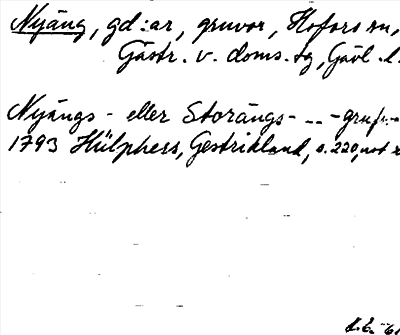 Nyäng, gd:ar, gruvor, Hofors sn,
Gästr. v. doms. tg, Gävl. l.
Nyängs- eller Storängs- -- -gruf:-
1793 Hülphers, Gestrikland, s. 220, not